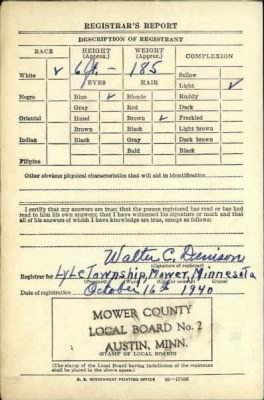 REGISTRAR'S REPORT
DESCRIPTION OF REGISTRANT
RACE HEIGHT (Approx.) WEIGHT (Approx.) COMPLEXION
White ✓ 6 ft. - 185 Sallow
EYES HAIR Light ✓
Negro Blue ✓ Blonde Ruddy
Gray Red Dark
Oriental Hazel Brown ✓ Freckled
Brown Black Light brown
Indian Black Gray Dark brown
Bald Black
Filipino
Other obvious physical characteristics that will aid in identification
I certify that my answers are true; that the person registered has read or has had
read to him his own answers; that I have witnessed his signature or mark and that
all of his answers of which I have knowledge are true, except as follows:
Walter C. Denison
(Signature of registrar)
Registrar for Lyle Township, Mower, Minnesota
Date of registration October 16th 1940
MOWER COUNTY
LOCAL BOARD No. 2
AUSTIN, MINN.
(STAMP OF LOCAL BOARD)
(The stamp of the Local Board having jurisdiction of the registrant
shall be placed in the above space.)
U. S. GOVERNMENT PRINTING OFFICE